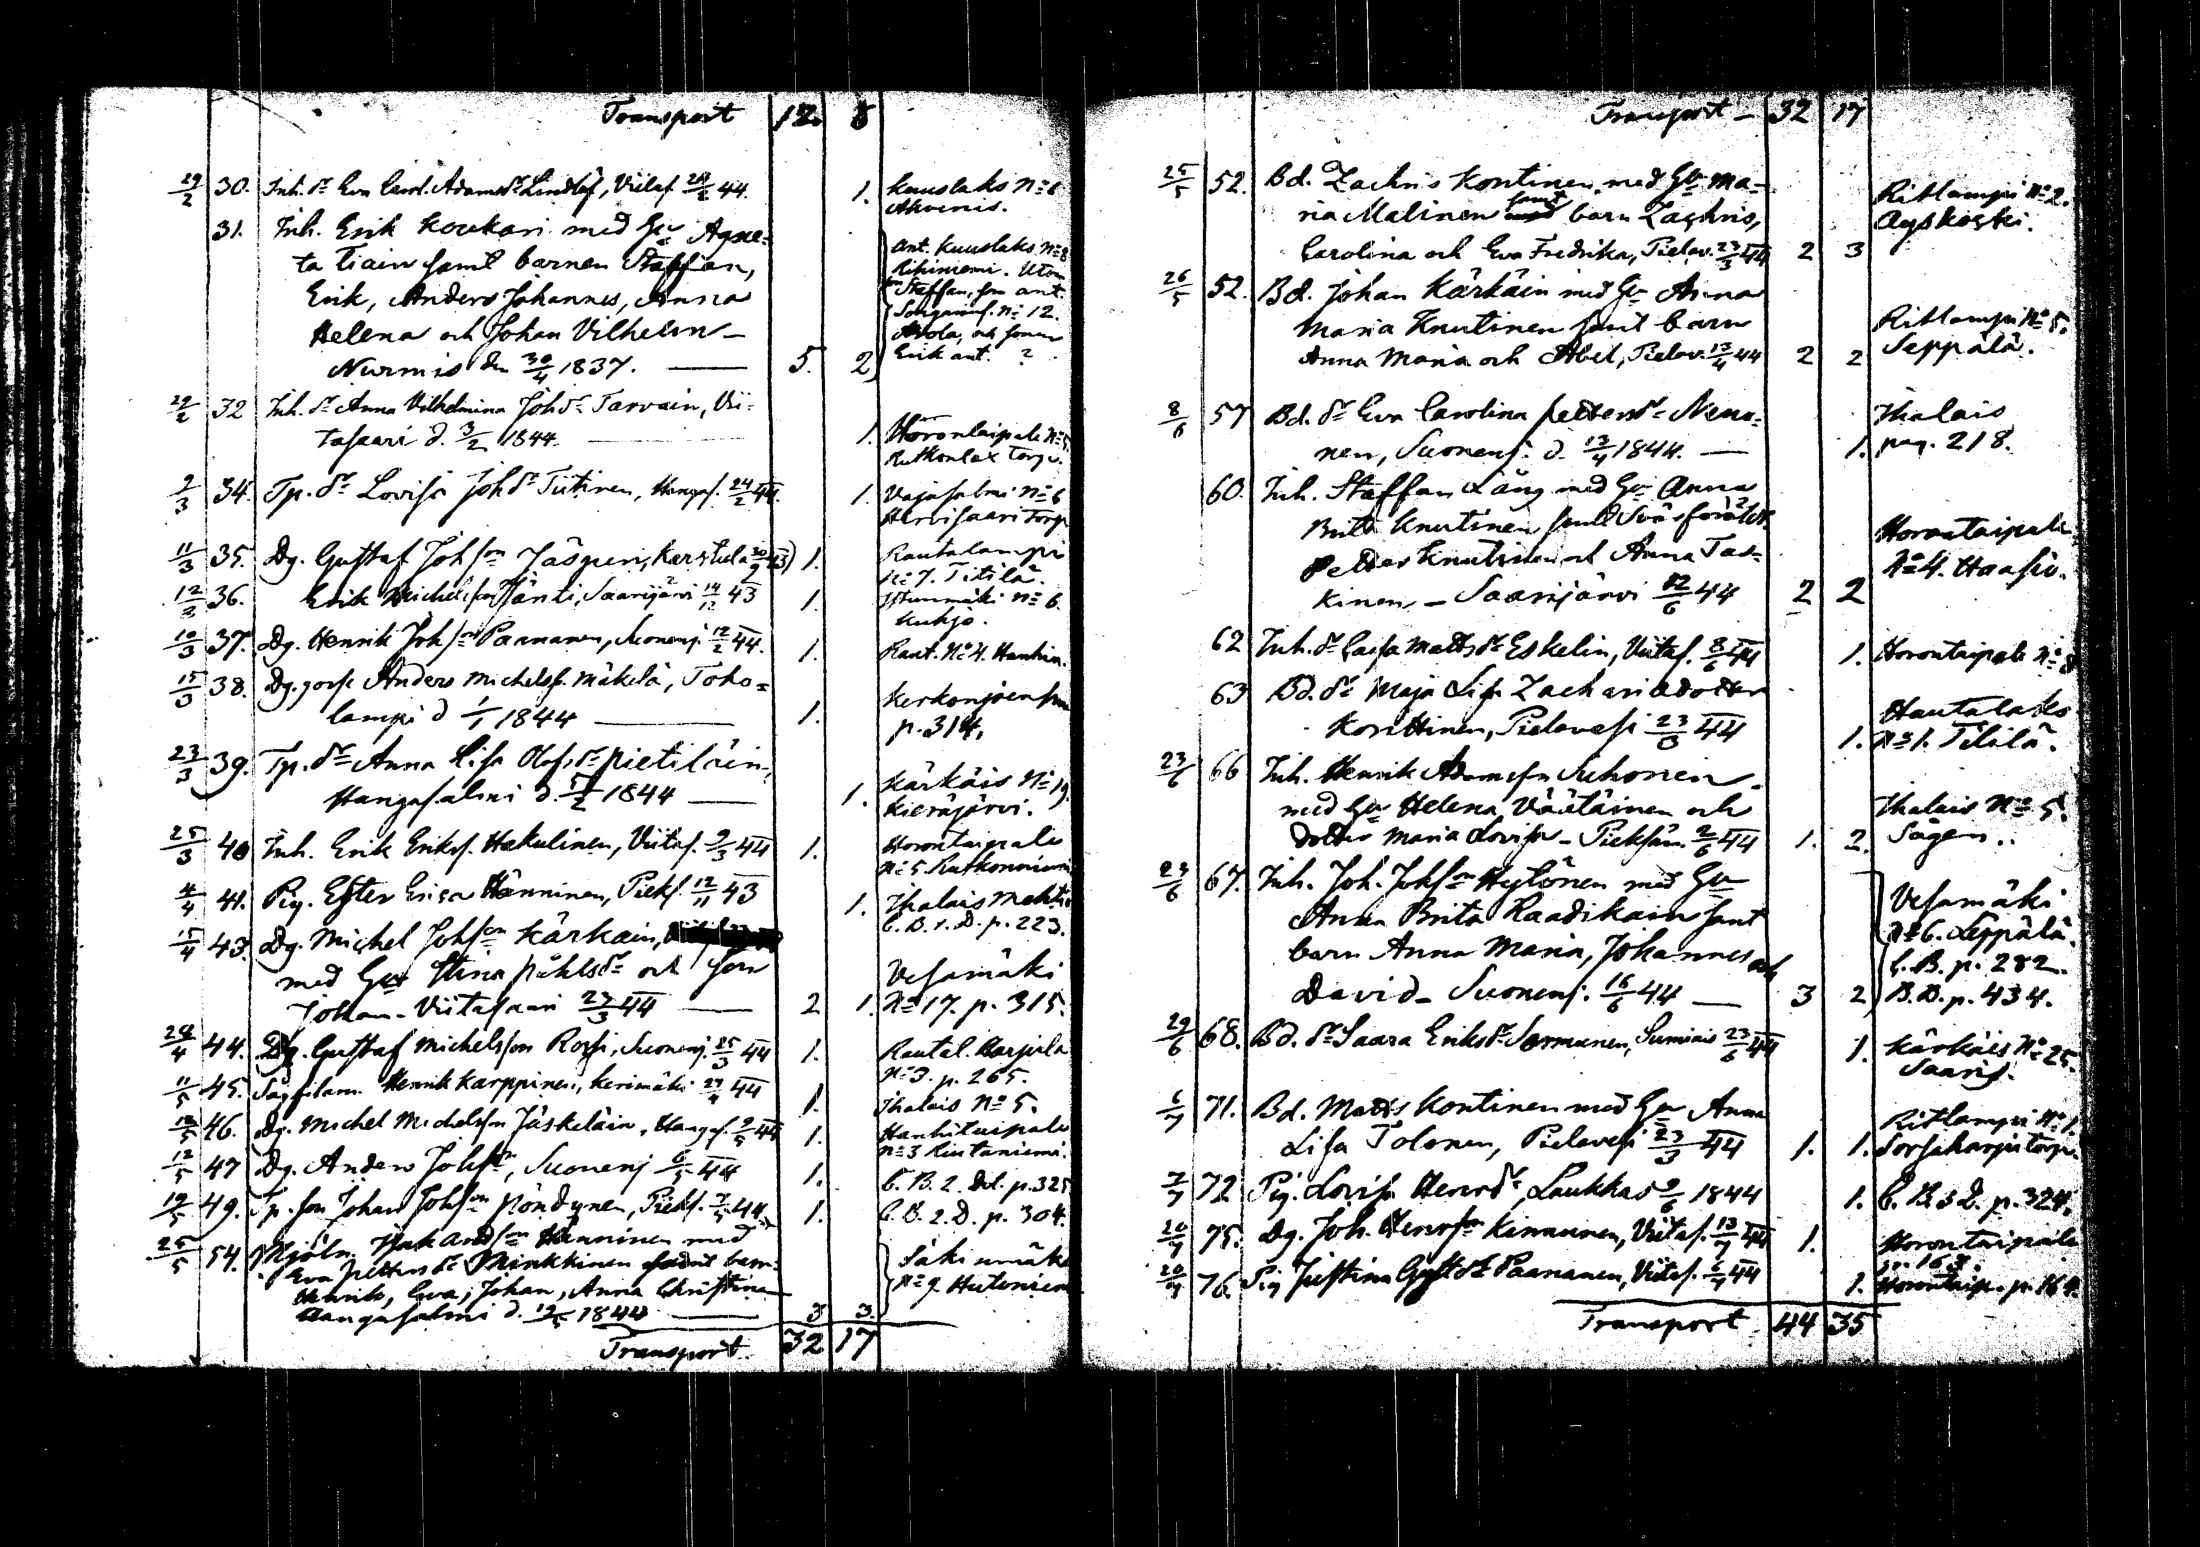 Transport 12. 8
29/2 30. Inh. dr Eva Carol. Adamsdr Lindlöf, Viitas. 24/2 44. 1. Kuuslaks No 6
Ahvenis.
31. Inh. Erik Koukari med Hu Agne-
ta Tiain samt barnen Staffan,
Erik, Anders Johannes, Anna
Helena och Johan Vilhelm –
Nurmis den 30/4 1837. 5. 2
ant. Kuuslaks No 8
Rihiniemi. Utom
Staffan, som ant.
No 12.
och sonen
Erik ant. ?
29/2 32 Inh. dr Anna Vilhelmina Johdr Tarvain, Vii-
tasaari d. 3/2 1844. 1. Horontaipale No 5
Rutkonlax Torp.
2/3 34. Tp. dr Lovisa Johdr Tiitinen, Hangas. 24/2 44. 1. Vajasalmi No 6
Hervisaari Torp
11/3 35. Dg. Gustaf Johson Jäspen, Karstula 30/2 43) 1. Rautalampi
No 7. Titilä.
12/3 36. Erik Michelsson Jänti, Saarijärvi 14/12 43 1. Istunmäki No 6.
Kukjo.
10/3 37. Dg. Henrik Johson Paananen, Suonenj. 12/2 44. 1. Raut. No 4. Hanhin.
15/3 38. Dg. gosse Anders Michelss. Mäkelä, Toho-
lampi d 1/1 1844 1. Kerkonjoensuu
p. 314.
23/3 39. Tp. dr Anna Lisa Olofsdr Pietiläin,
Hangasalmi d. 5/2 1844 1. Kärkäis No 19.
Kieräjärvi.
25/3 40 Inh. Erik Erikss. Hakulinen, Viitas. 9/3 44 1. Horontaipale
No 5. Rutkonniemi
4/4 41. Pig. Ester Erica Hänninen, Pieks. 12/11 43 1. Ihalais Mahti
C. B. 1. D. p. 223.
15/4 43. Dg. Michel Johson Kärkäin,
med Hu Stina Påhlsdr och son
Johan – Viitasaari 23/3 44 2 1. Vesamäki
No 17. p. 315.
28/4 44. Dg. Gustaf Michelsson Rossi, Suonenj. 25/3 44 1. Rautal. Harjula
No 3. p. 265.
11/5 45. Henrik Karppinen, Kerimäki 27/4 44 1. Ihalais No 5.
12/5 46. Dg. Michel Michelsson Jäskeläin, Hangas. 9/5 44 1. Hanhitaipale
No 3 Rintaniemi.
12/5 47 Dg. Anders Johson, Suonenj 6/5 44 1. C. B. 2. Del. p. 325
19/5 49. Tp. son Johan Johson Pöndynen, Pieks. 7/5 44. 1. C. B. 2. D. p. 304.
25/5 54. Mjöln. Isak Andson Hänninen med
Eva Pettersdr Minkkinen samt barn
Henrik, Eva, Johan, Anna Christina
Hangasalmi d. 12/5 1844 3 3.
No 9 Hutoniem
Transport. 32 17
Transport – 32 17
25/5 52. Bd. Zachris Kontinen, med Hu Ma-
ria Malinen samt barn Zachris,
Carolina och Eva Fredrika, Pielav. 23/3 44 2 3
Ritlampi No 2.
Ayskoski.
26/5 52. Bd. Johan Kärkäin med Hu Anna
Maria Knutinen samt barn
Anna Maria och Abel, Pielav. 13/4 44 2 2
Ritlampi No 5.
Seppälä.
8/6 57 Bd. dr Eva Carolina Pettersdr Neno-
nen, Suonenj. d. 13/4 1844. 1.
Ihalais
pag. 218.
60. Inh. Staffan Lång med Hu Anna
Brita Knutinen samt Svärföräldr.
Petter Knutinen och Anna Tas-
kinen – Saarijärvi 12/6 44 2 2
Horontaipale
No 4. Haasio.
62 Inh. dr Caisa Mattsdr Eskelin, Viitas. 8/6 44 1. Horontaipale No 8
63 Bd. dr Maja Lisa Zachariædotter
Konttinen, Pielavesi 23/3 44 1.
Hautalaks
No 1. Titilä.
23/6 66 Inh. Henrik Adamsson Suhonen
med Hu Helena Väätäinen och
dotter Maria Lovisa – Pieksäm. 2/6 44 1. 2.
Ihalais No 5.
Sågen..
23/6 67. Inh. Joh. Johson Hytönen med Hu
Anna Brita Raadikain samt
barn Anna Maria, Johannes och
David – Suonenj. 16/6 44 3 2
Vesamäki
No 6. Leppälä.
C. B. p. 282.
B. B. p. 434.
29/6 68. Bd. dr Saara Eriksdr Sormunen, Sumiais 23/6 44 1. Kärkäis No 25.
Saaris.
6/7 71. Bd. Matts Kontinen med Hu Anna
Lisa Tolonen, Pielavesi 23/3 44 1. 1.
Ritlampi No 1.
Sorsaharju torp.
7/7 72 Pig. Lovisa Henrdr, Laukkas 9/6 1844 1. C. B. 3 D. p. 324.
20/7 75. Dg. Joh. Henrson Kinnunen, Viitas. 13/7 44 1. Horontaipale
p. 163.
20/7 76. Pig Justina Gustdr Paananen, Viitas. 6/7 44 1. Horontaip. p. 164.
Transport 44 35